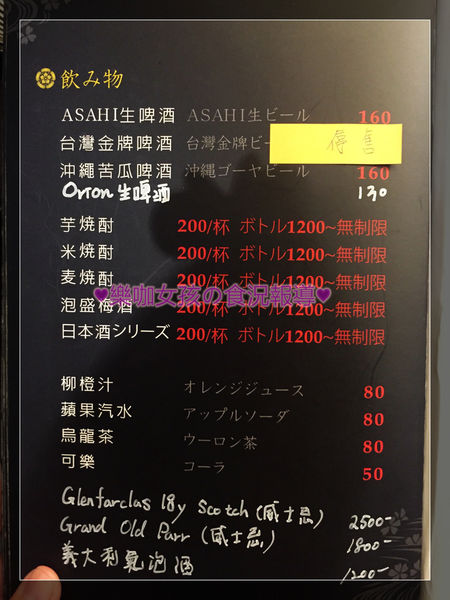 飲み物
ASAHI生啤酒 ASAHI生ビール 160
台灣金牌啤酒 台灣金牌ビー 停售
沖繩苦瓜啤酒 沖縄ゴーヤビール 160
Orion生啤酒 130
芋焼酎 200/杯 ボトル1200~無制限
米焼酎 200/杯 ボトル1200~無制限
麦焼酎 200/杯 ボトル1200~無制限
♥樂咖女孩の食況報導♥
泡盛梅酒 200/杯 ボトル1200~無制限
日本酒シリーズ 200/杯 ボトル1200~無制限
柳橙汁 オレンジジュース 80
蘋果汽水 アップルソーダ 80
烏龍茶 ウーロン茶 80
可樂 コーラ 50
Glenfarclas 18y Scotch (威士忌) 2500-
Grand Old Parr (威士忌) 1800-
義大利氣泡酒 1200-